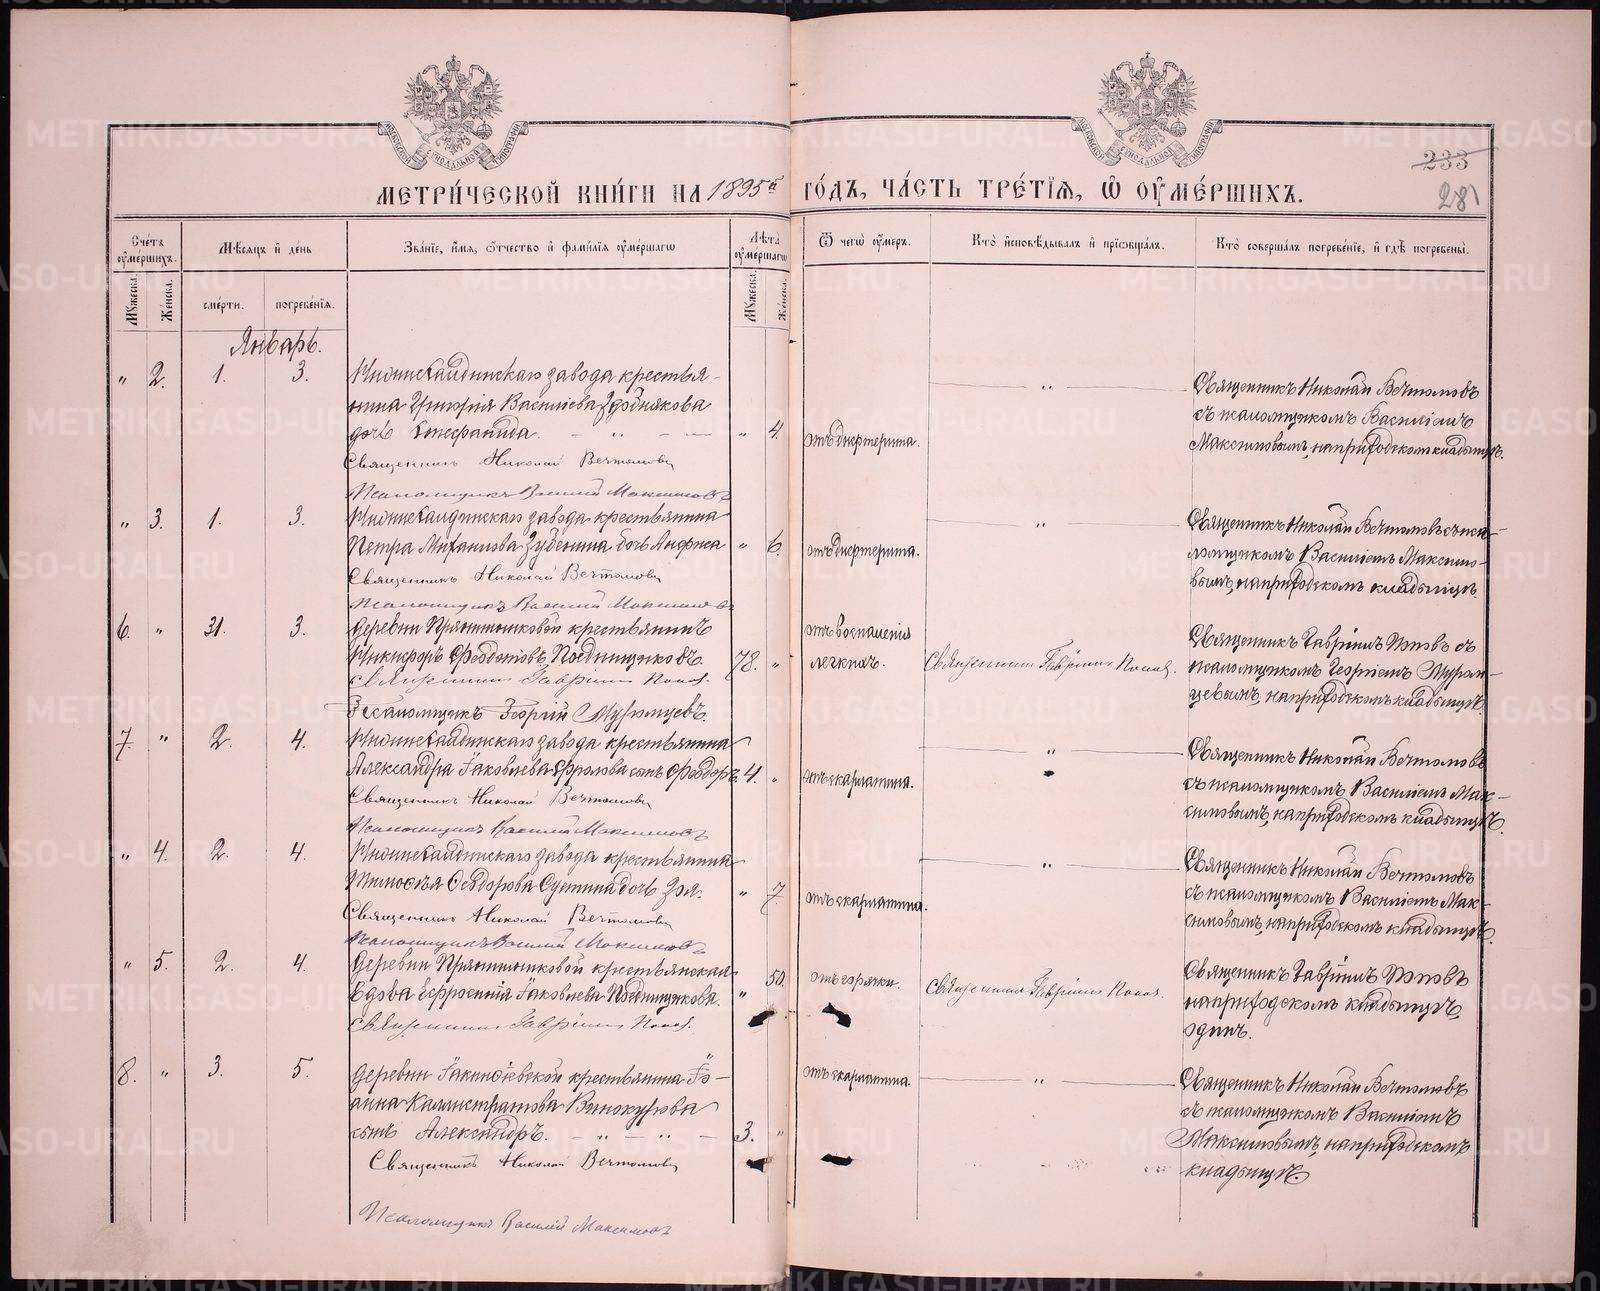 МОСКОВСКОЙ СѴНОДАЛЬНОЙ ТИПОГРАФІИ
МОСКОВСКОЙ СѴНОДАЛЬНОЙ ТИПОГРАФІИ
233
281
МЕТРИ́ЧЕСКОЙ КНИ́ГИ НА 1895й ГО́ДЪ, ЧА́СТЬ ТРЕ́ТІѦ, Ѽ ОУ҆МЕ́РШИХЪ.
Сче́тъ оу҆ме́ршихъ.
Мꙋжеска.
Же́нска.
Мѣ́сѧцъ и҆ де́нь
сме́рти.
погребе́нїѧ.
Зва́нїе, и҆́мѧ, ѻ҆́тчество и҆ фами́лїѧ оу҆ме́ршагѡ
Лѣ́та оу҆ме́ршагѡ
Мꙋжеска.
Же́нска.
Ѿ чегѡ̀ оу҆́меръ.
Кто̀ и҆сповѣ́дывалъ и҆ прїѡбща́лъ.
Кто̀ соверша́лъ погребе́нїе, и҆ гдѣ̀ погребены̀.
Январь.
" 2. 1. 3.
Нижнесалдинскаго завода крестья-
нина Григорія Васильева
дочь " 4.
Священникъ Николай Вечтомовъ
Псаломщикъ Василій Максимовъ
отъ дифтерита.
"
Священникъ Николай Вечтомовъ
съ псаломщикомъ Василіемъ
Максимовымъ, на приходскомъ кладбищѣ.
" 3. 1. 3.
Нижнесалдинскаго завода крестьянина
Петра Михаилова Зубенина дочь Анфиса " 6.
Священникъ Николай Вечтомовъ
Псаломщикъ Василій Максимовъ
отъ дифтерита.
"
Священникъ Николай Вечтомовъ съ пса-
ломщикомъ Василіемъ Максимо-
вымъ, на приходскомъ кладбищѣ.
6. " 31. 3.
Деревни Прянишниковой крестьянинъ
Никифоръ Ѳеодотовъ 78. "
Священникъ Гавріилъ Поповъ.
Псаломщикъ Георгій Мурзинцевъ.
отъ воспаленія
легкихъ.
Священникъ Гавріилъ Поповъ.
Священникъ Гавріилъ Поповъ съ
псаломщикомъ Георгіемъ
на приходскомъ кладбищѣ.
7. " 2. 4.
Нижнесалдинскаго завода крестьянина
Александра Іаковлева Фролова сынъ Ѳеодоръ. 4. "
Священникъ Николай Вечтомовъ
Псаломщикъ Василій Максимовъ
отъ скарлатины.
"
Священникъ Николай Вечтомовъ
съ псаломщикомъ Василіемъ Мак-
симовымъ, на приходскомъ кладбищѣ.
" 4. 2. 4.
Нижнесалдинскаго завода крестьянина
Тимоѳея Ѳеодорова дочь Зоя. " 7.
Священникъ Николай Вечтомовъ
Псаломщикъ Василій Максимовъ
отъ скарлатины.
"
Священникъ Николай Вечтомовъ
съ псаломщикомъ Василіемъ Мак-
симовымъ, на приходскомъ кладбищѣ.
" 5. 2. 4.
Деревни Прянишниковой крестьянская
вдова Евфросинія Іаковлева " 50.
Священникъ Гавріилъ Поповъ.
отъ горячки.
Священникъ Гавріилъ Поповъ.
Священникъ Гавріилъ Поповъ
на приходскомъ кладбищѣ,
одинъ.
8. " 3. 5.
Деревни крестьянина Іо-
анна Каллистратова Винокурова
сынъ Александръ. 3. "
Священникъ Николай Вечтомовъ
Псаломщикъ Василій Максимовъ
отъ скарлатины.
"
Священникъ Николай Вечтомовъ
съ псаломщикомъ Василіемъ
Максимовымъ, на приходскомъ
кладбищѣ.
METRIKI.GASO-URAL.RU